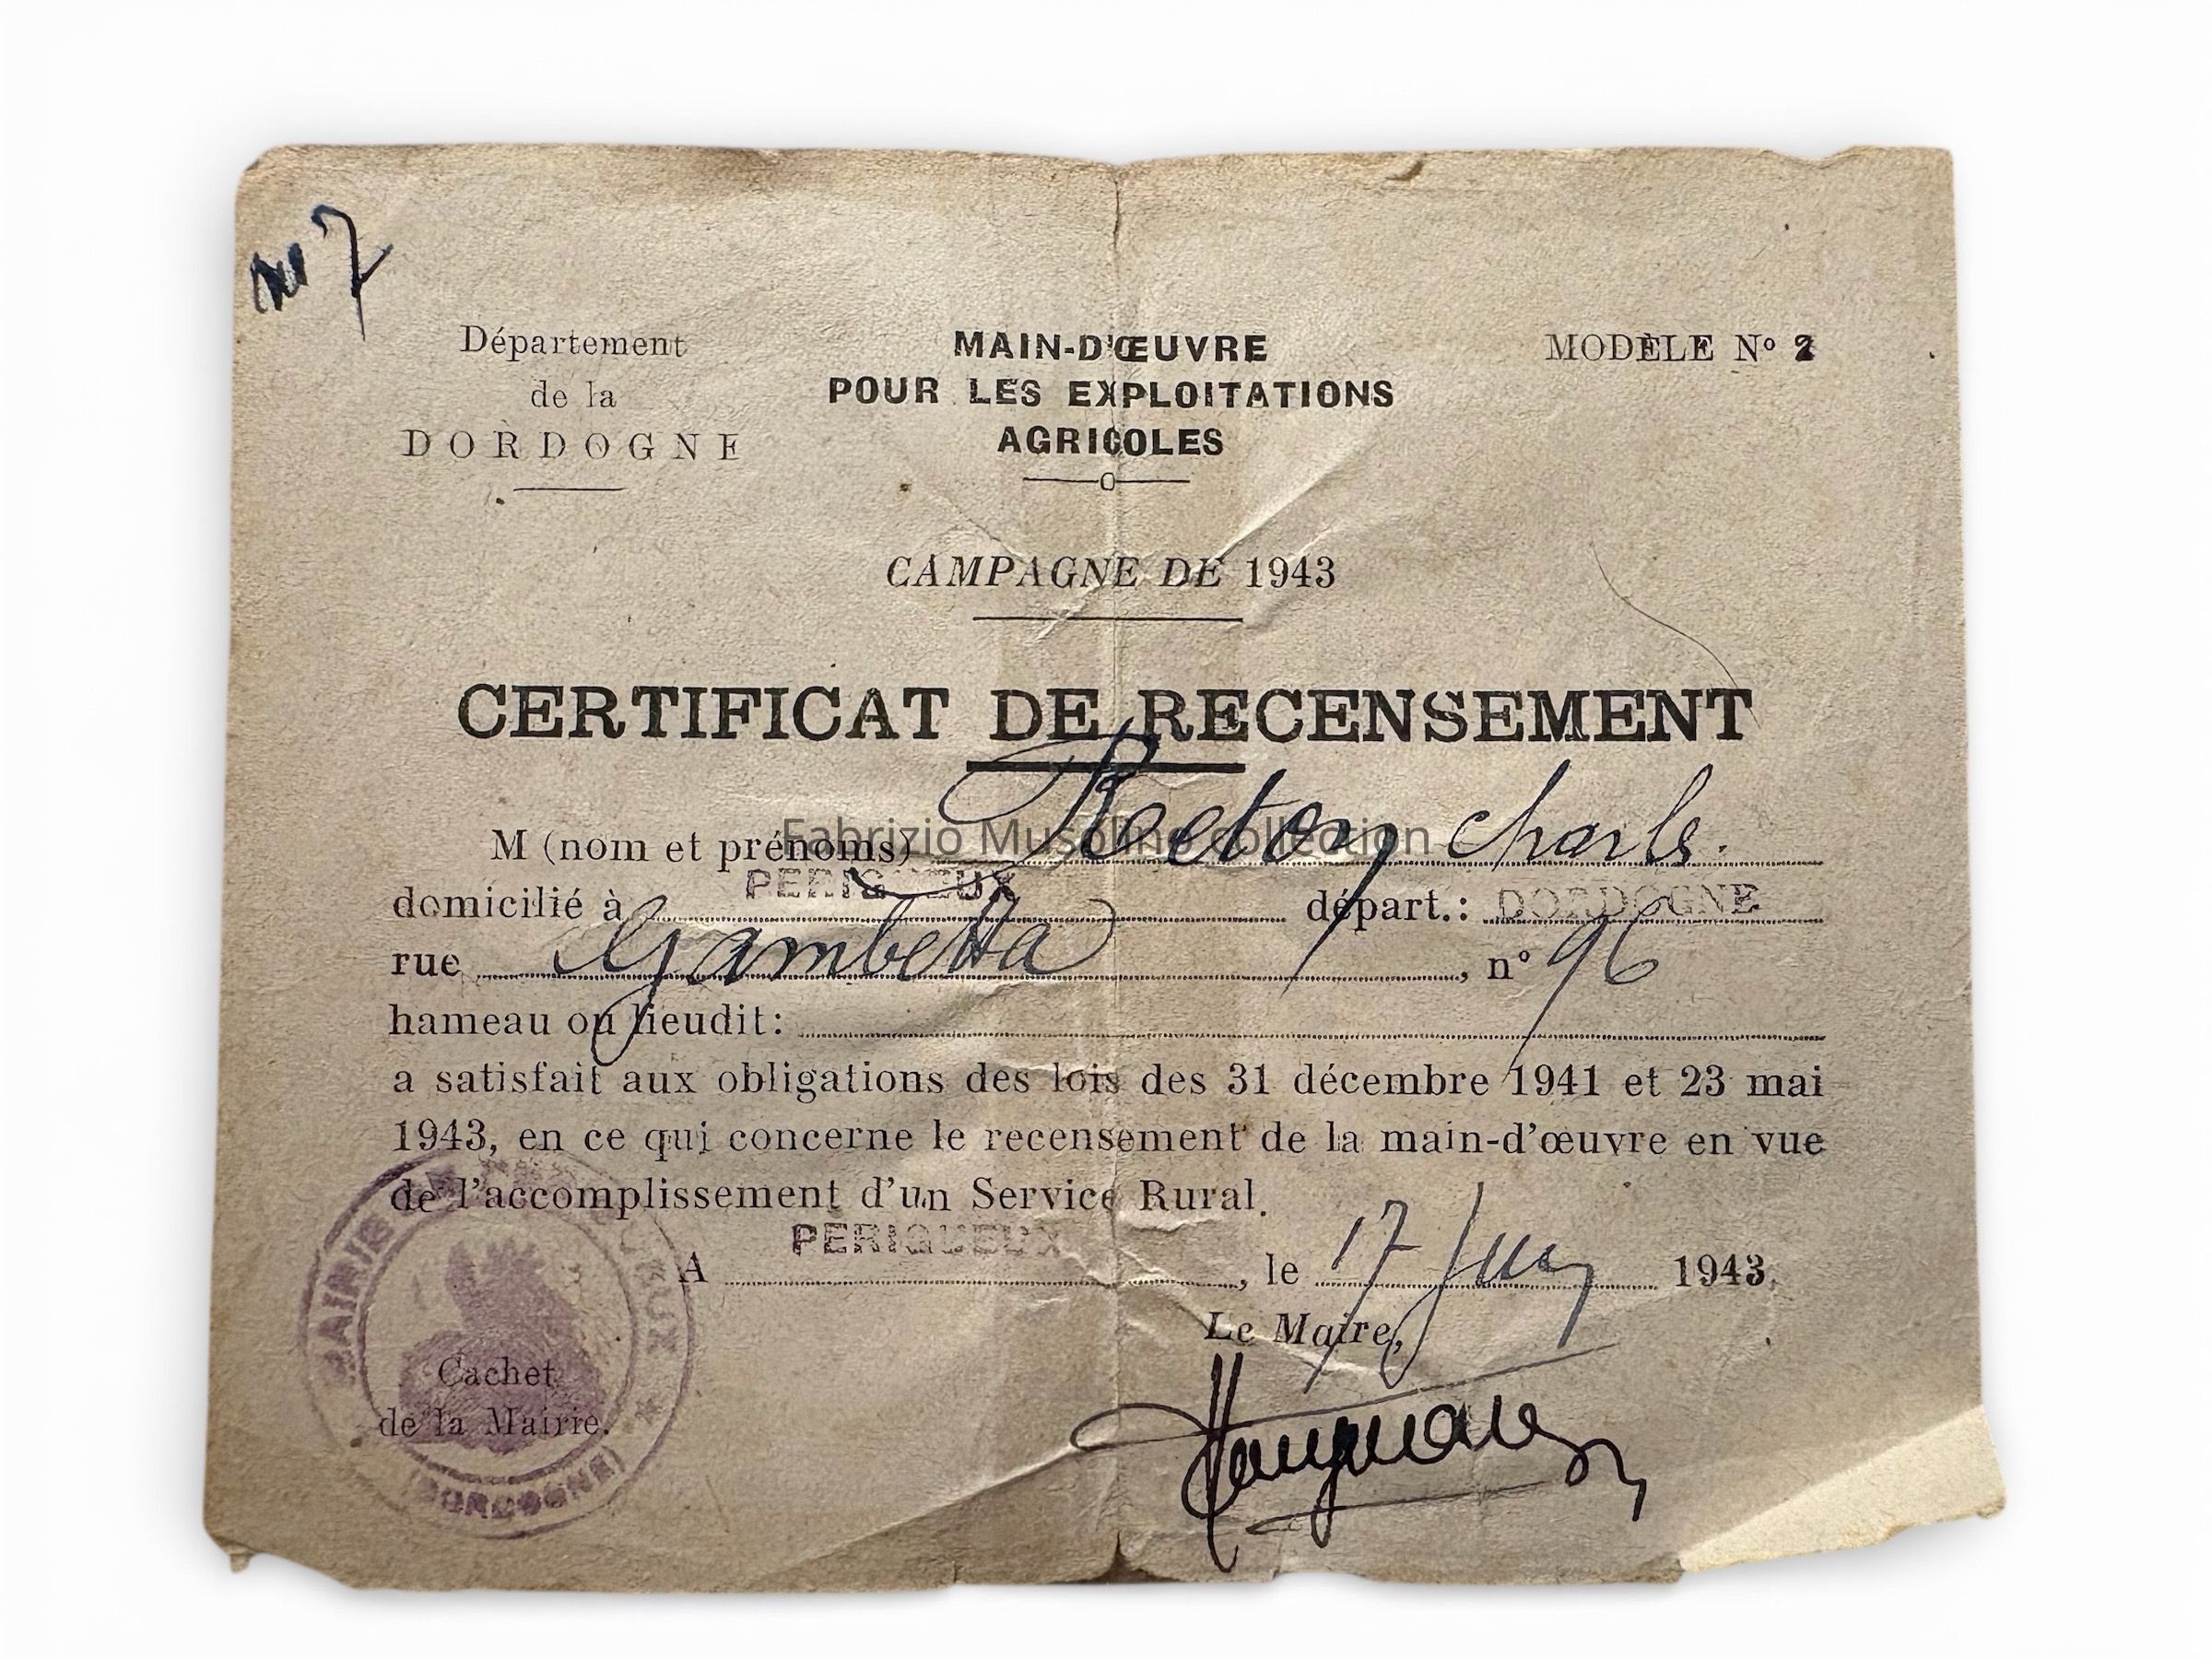 nº 7
Département
de la
DORDOGNE
MAIN-D'ŒUVRE
POUR LES EXPLOITATIONS
AGRICOLES
MODÈLE Nº 2
CAMPAGNE DE 1943
CERTIFICAT DE RECENSEMENT
M (nom et prénoms) Charles
Fabrizio Musolino collection
domicilié à PERIGUEUX départ.: DORDOGNE
rue Gambetta, nº 96
hameau ou lieudit:
a satisfait aux obligations des lois des 31 décembre 1941 et 23 mai
1943, en ce qui concerne le recensement de la main-d'œuvre en vue
de l'accomplissement d'un Service Rural.
A PERIGUEUX, le 17 Juin 1943.
Le Maire,
Cachet
de la Mairie.
MAIRIE DE PERIGUEUX
(DORDOGNE)